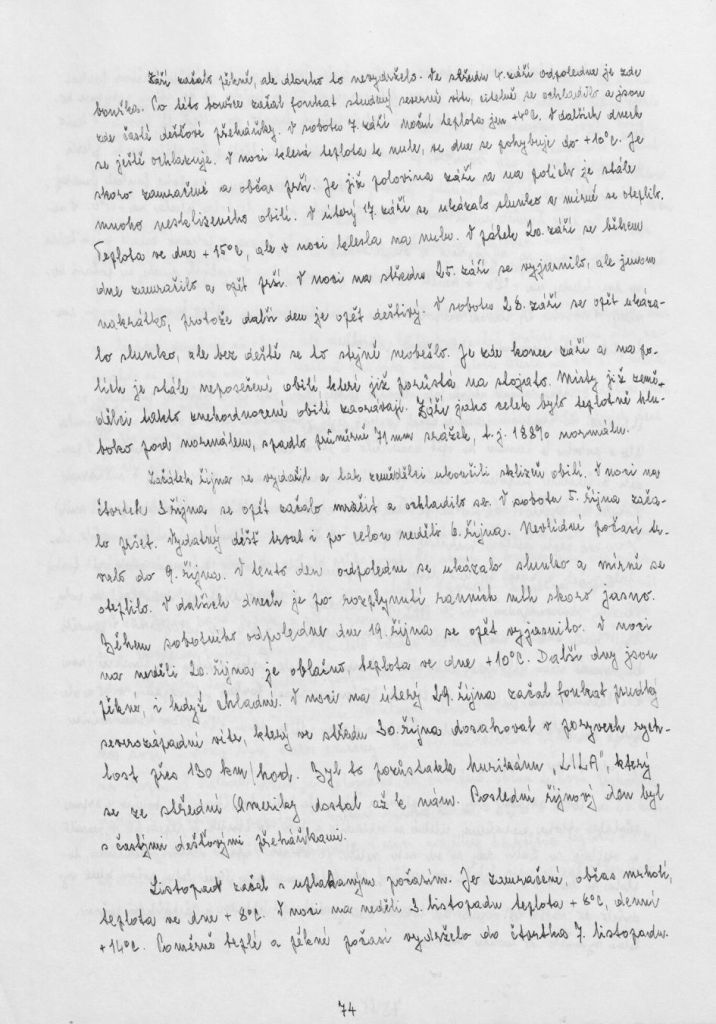 Září začalo pěkně, ale dlouho to nevydrželo. Ve středu 4. září odpoledne je zde
bouřka. Po této bouřce začal foukat studený severní vítr, citelně se ochladilo a jsou
zde časté dešťové přeháňky. V sobotu 7. září noční teplota jen +4°C. V dalších dnech
se ještě ochlazuje. V noci klesá teplota k nule, ve dne se pohybuje do +10°C. Je
skoro zamračené a občas prší. Je již polovina září a na polích je stále
mnoho nesklizeného obilí. V úterý 17. září se ukázalo slunko a mírně se oteplilo.
Teplota ve dne +15°C, ale v noci klesla na nulu. V pátek 20. září se během
dne zamračilo a opět prší. V noci na středu 25. září se vyjasnilo, ale jenom
nakrátko, protože další den je opět deštivý. V sobotu 28. září se opět ukáza-
lo slunko, ale bez deště se to stejně neobešlo. Je zde konec září a na po-
lích je stále neposečené obilí které již porůstá na stojato. Místy již země-
dělci takto znehodnocené obilí zaorávají. Září jako celek bylo teplotně hlu-
boko pod normálem, spadlo průměrně 71 mm srážek, t.j. 188% normálu.
Začátek října se vydařil a tak zemědělci ukončili sklizň obilí. V noci na
čtvrtek 3. října se opět začalo mračit a ochladilo se. V sobotu 5. října zača-
lo pršet. Vydatný déšť trval i po celou neděli 6. října. Nevlídné počasí tr-
valo do 9. října. V tento den odpoledne se ukázalo slunko a mírně se
oteplilo. V dalších dnech je po rozplynutí ranních mlh skoro jasno.
Během sobotního odpoledne dne 19. října se opět vyjasnilo. V noci
na neděli 20. října je oblačno, teplota ve dne +10°C. Další dny jsou
pěkné, i když chladné. V noci na úterý 29. října začal foukat prudký
severozápadní vítr, který ve středu 30. října dosahoval v poryvech rych-
lost přes 130 km/hod. Byl to pozůstatek hurikánu „LILA", který
se ze střední Ameriky dostal až k nám. Poslední říjnový den byl
s častými dešťovými přeháňkami.
Listopad začal s uplakaným počasím. Je zamračené, občas mrholí,
teplota ve dne +8°C. V noci na neděli 3. listopadu teplota +6°C, denní
+14°C. Poměrně teplé a pěkné počasí vydrželo do čtvrtka 7. listopadu.
74